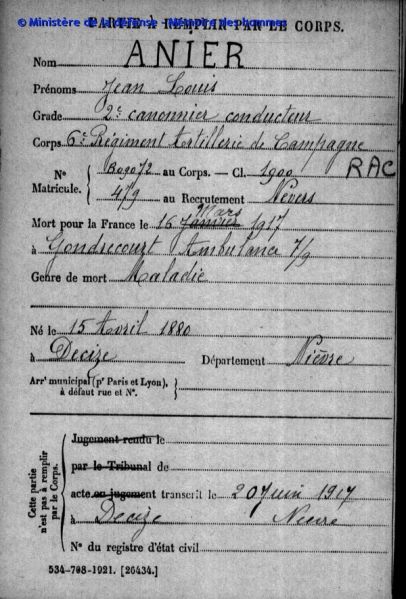 © Ministère de la défense - Mémoire des hommes
PARTIE À REMPLIR PAR LE CORPS.
Nom ANIER
Prénoms Jean Louis
Grade 2e canonnier conducteur
Corps 6e Régiment Artillerie de Campagne RAC
Nº Matricule. { 72 au Corps. — Cl. 1900
479 au Recrutement Nevers
Mars
Mort pour la France le 16 Janvier 1917
à Gondrecourt Ambulance 7/9
Genre de mort Maladie
Né le 15 Avril 1880
à Decize Département Nièvre
Arrt municipal (pr Paris et Lyon), }
à défaut rue et Nº.
Cette partie n'est pas à remplir par le Corps.
Jugement rendu le
par le Tribunal de
acte ou jugement transcrit le 20 Juin 1917
à Decize Nièvre
Nº du registre d'état civil
534-708-1921. [26434.]